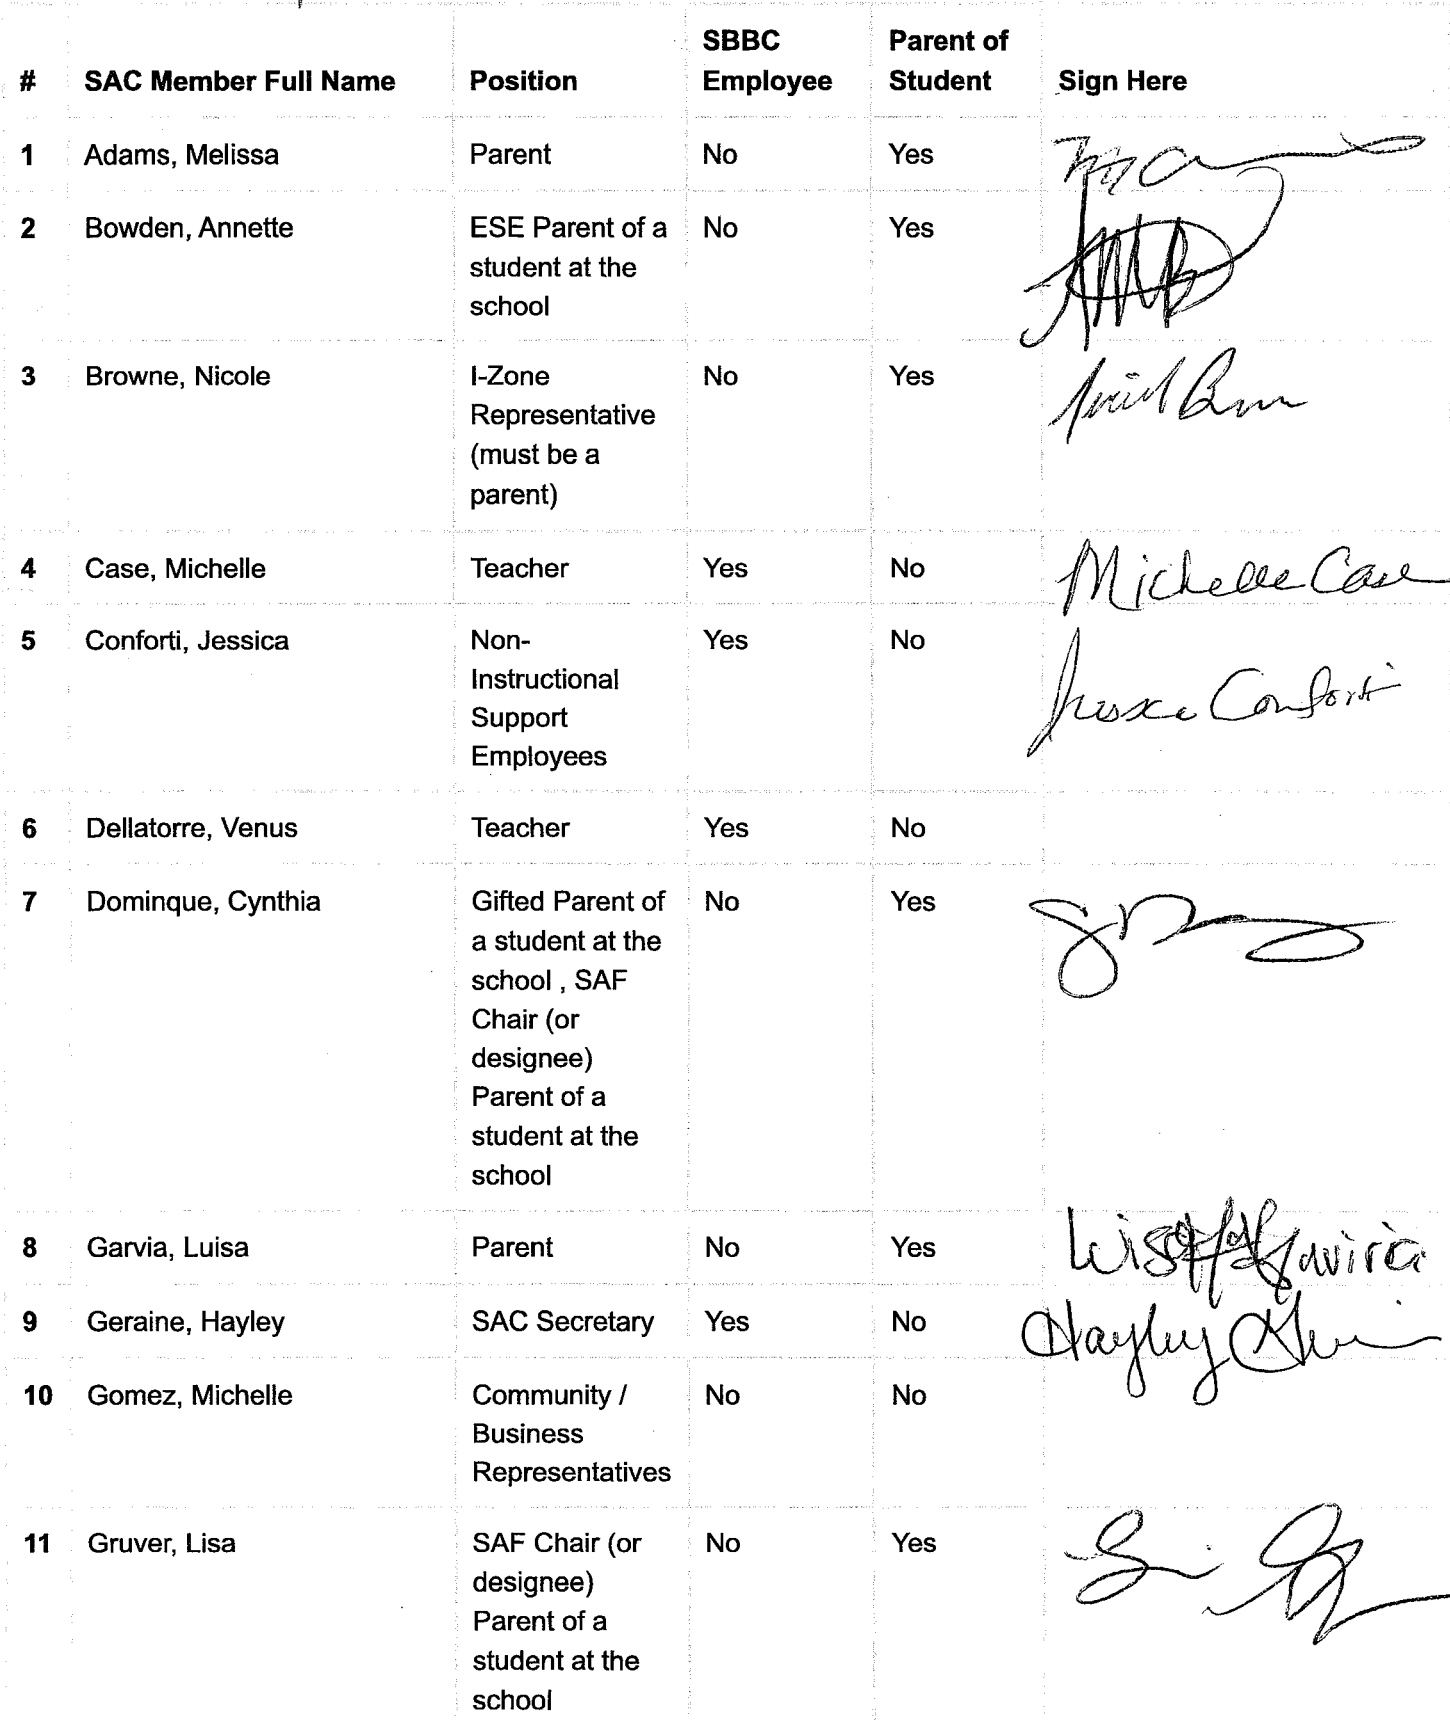 # SAC Member Full Name Position SBBC Employee Parent of Student Sign Here
1 Adams, Melissa Parent No Yes
2 Bowden, Annette ESE Parent of a No Yes
student at the
school
3 Browne, Nicole I-Zone No Yes
Representative
(must be a
parent)
4 Case, Michelle Teacher Yes No Michelle Case
5 Conforti, Jessica Non- Yes No
Instructional Conforti
Support
Employees
6 Dellatorre, Venus Teacher Yes No
7 Dominque, Cynthia Gifted Parent of No Yes
a student at the
school , SAF
Chair (or
designee)
Parent of a
student at the
school
8 Garvia, Luisa Parent No Yes
9 Geraine, Hayley SAC Secretary Yes No Hayley
10 Gomez, Michelle Community / No No
Business
Representatives
11 Gruver, Lisa SAF Chair (or No Yes
designee)
Parent of a
student at the
school